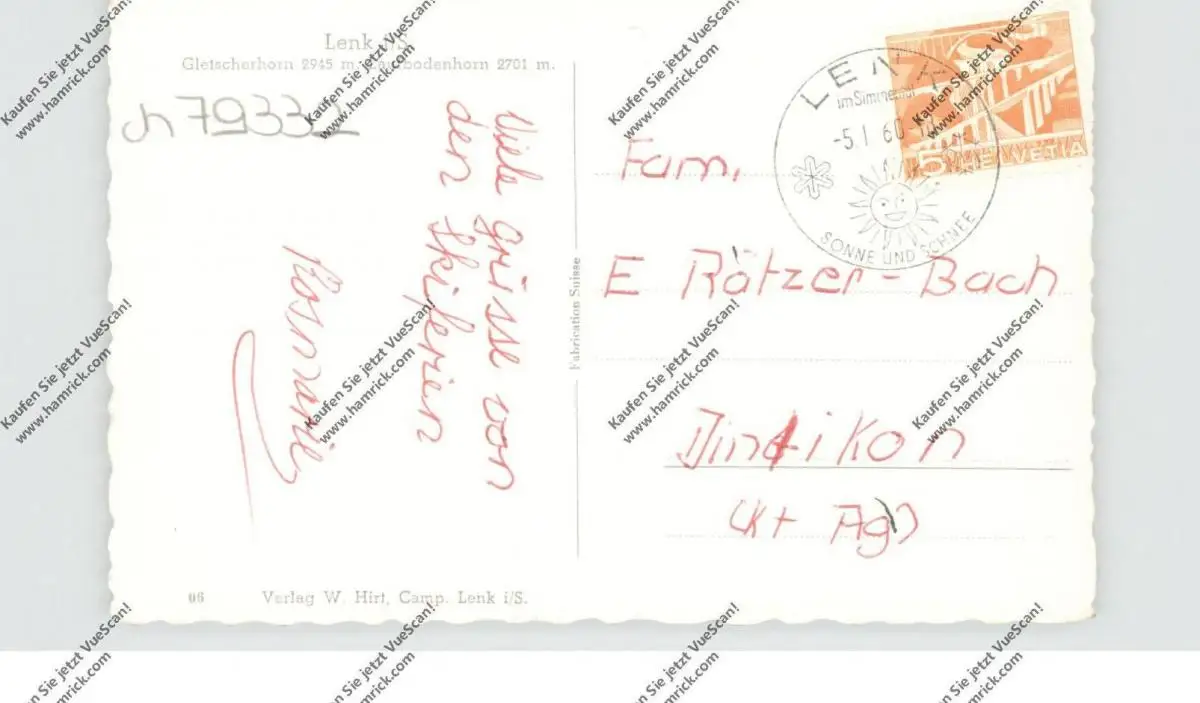 Lenk i/S.
Gletscherhorn 2945 m. Laubbodenhorn 2701 m.
ch79332
Viele grüsse von
den Skiferien
Rosmarie
Fabrication Suisse
LENK
im Simmental
-5.1.60-
SONNE UND SCHNEE
5 HELVETIA
Fam.
E Rätzer-Bach
Dintikon
(Kt Ag)
06 Verlag W. Hirt, Camp. Lenk i/S.
Kaufen Sie jetzt VueScan!
www.hamrick.com